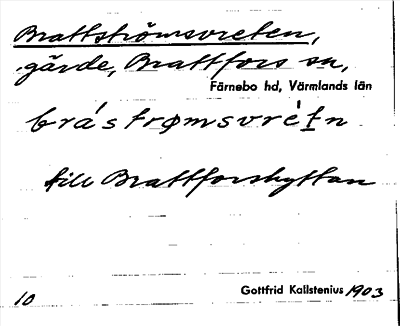 Brattströmsvreten,
gärde, Brattfors sn,
Färnebo hd, Värmlands län
bràstrømsvrétn
till Brattforshyttan
10
Gottfrid Kallstenius 1903